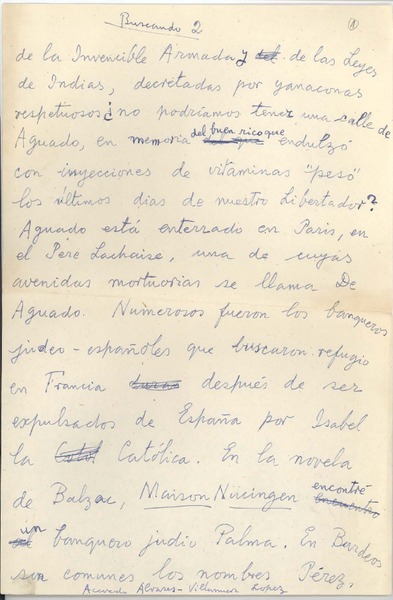 Buscando 2
(1)
de la Invencible Armada y de las Leyes
de Indias, decretadas por yanaconas
respetuosos ¿no podríamos tener una calle de
Aguado, en memoria del buen rico que endulzó
con inyecciones de vitaminas "peso"
los últimos dias de nuestro Libertador?
Aguado está enterrado en Paris, en
el Père Lachaise, una de cuyas
avenidas mortuorias se llama De
Aguado. Numerosos fueron los banqueros
judeo-españoles que buscaron refugio
en Francia después de ser
expulsados de España por Isabel
la Católica. En la novela
de Balzac, Maison Nucingen encontré
un banquero judio Palma. En Burdeos
son comunes los nombres Pérez,
Acevedo Alvares - Villamura Lopez